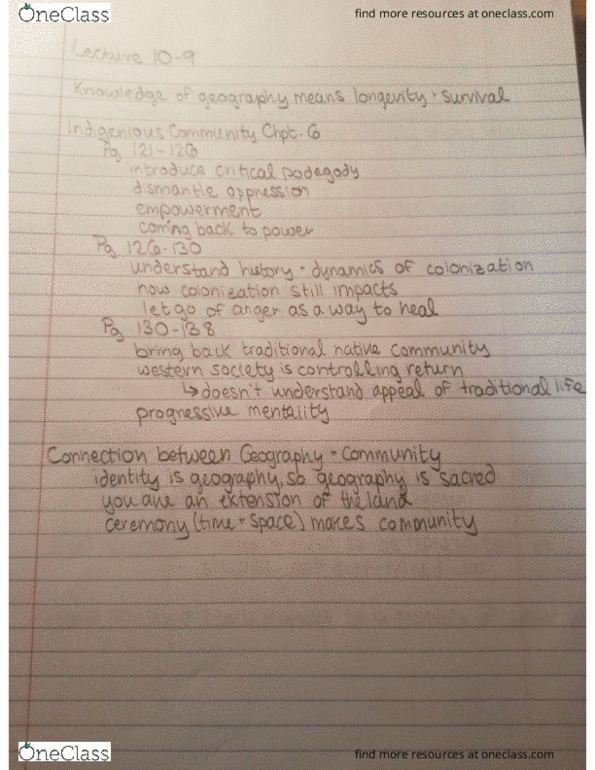 OneClass
find more resources at oneclass.com
Lecture 10-9
Knowledge of geography means longevity + survival
Indigenious Community Chpt. 6
Pg 121-126
introduce critical podegody
dismantle oppression
empowerment
coming back to power
Pg 126-130
understand history + dynamics of colonization
how colonization still impacts
let go of anger as a way to heal
Pg 130-138
bring back traditional native community
western society is controlling return
↳ doesn't understand appeal of traditional life
progressive mentality
Connection between Geography + Community
identity is geography, so geography is sacred
you are an extension of the land
ceremony (time + space) makes community
OneClass
find more resources at oneclass.com